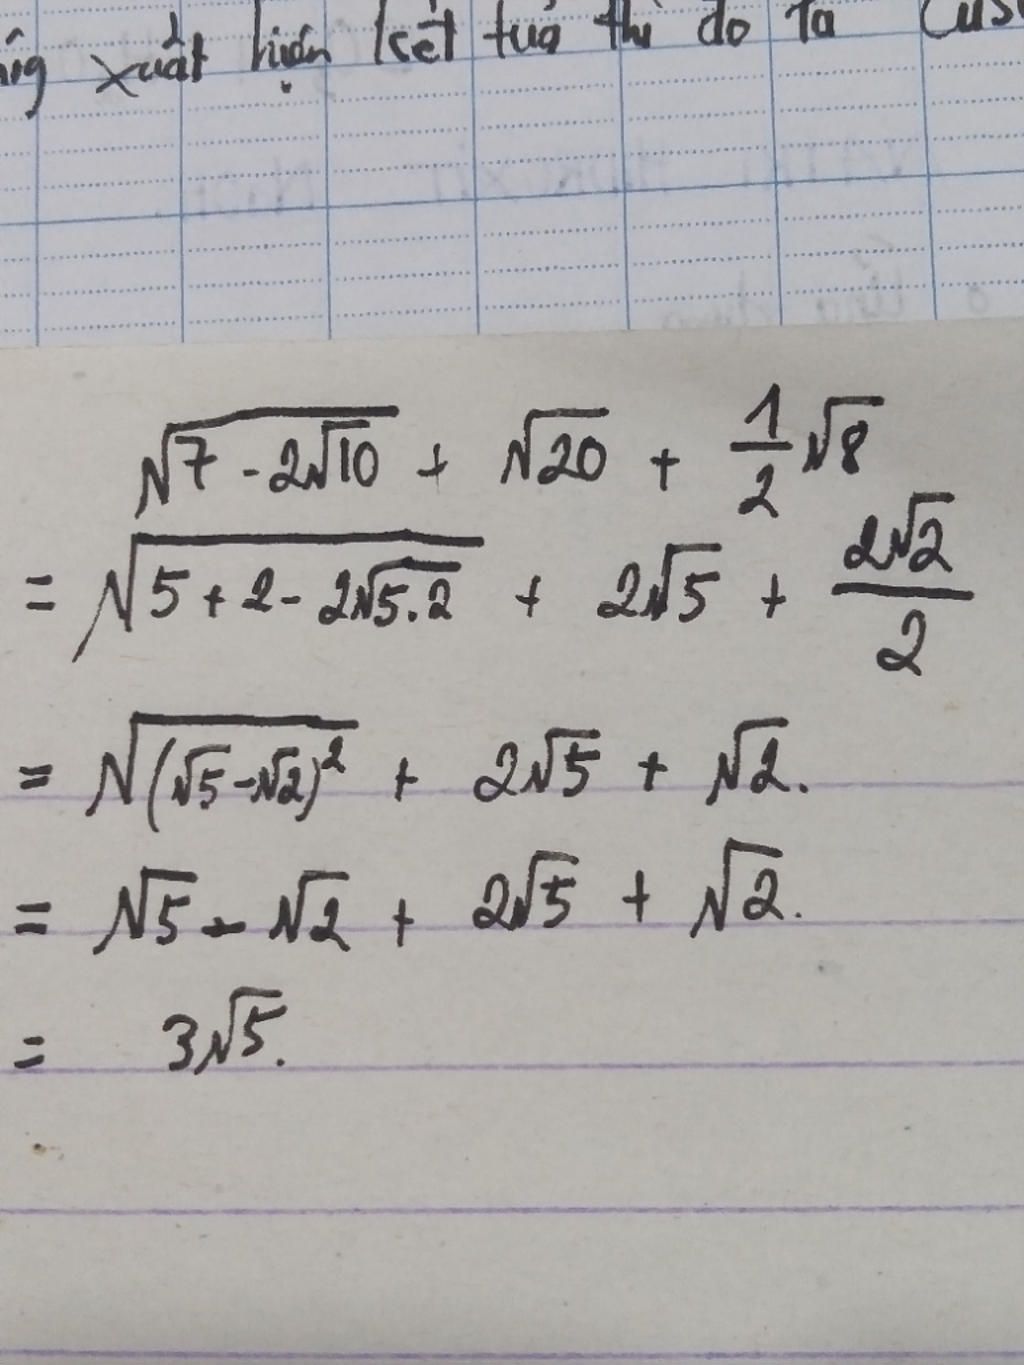 xuất hiện kết tủa thì do ta
√(7 - 2√10) + √20 + 1/2 √8
= √(5 + 2 - 2√5.2) + 2√5 + 2√2/2
= √((√5 - √2)²) + 2√5 + √2.
= √5 - √2 + 2√5 + √2.
= 3√5.